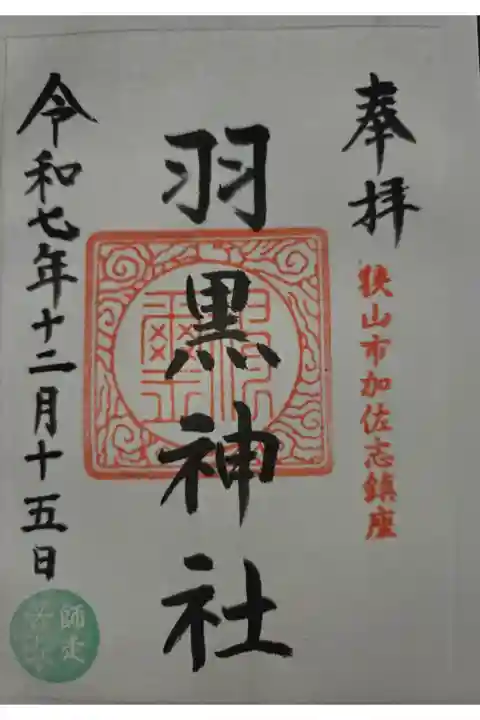 奉拝
狭山市加佐志鎮座
羽黒神社
令和七年十二月十五日
師走